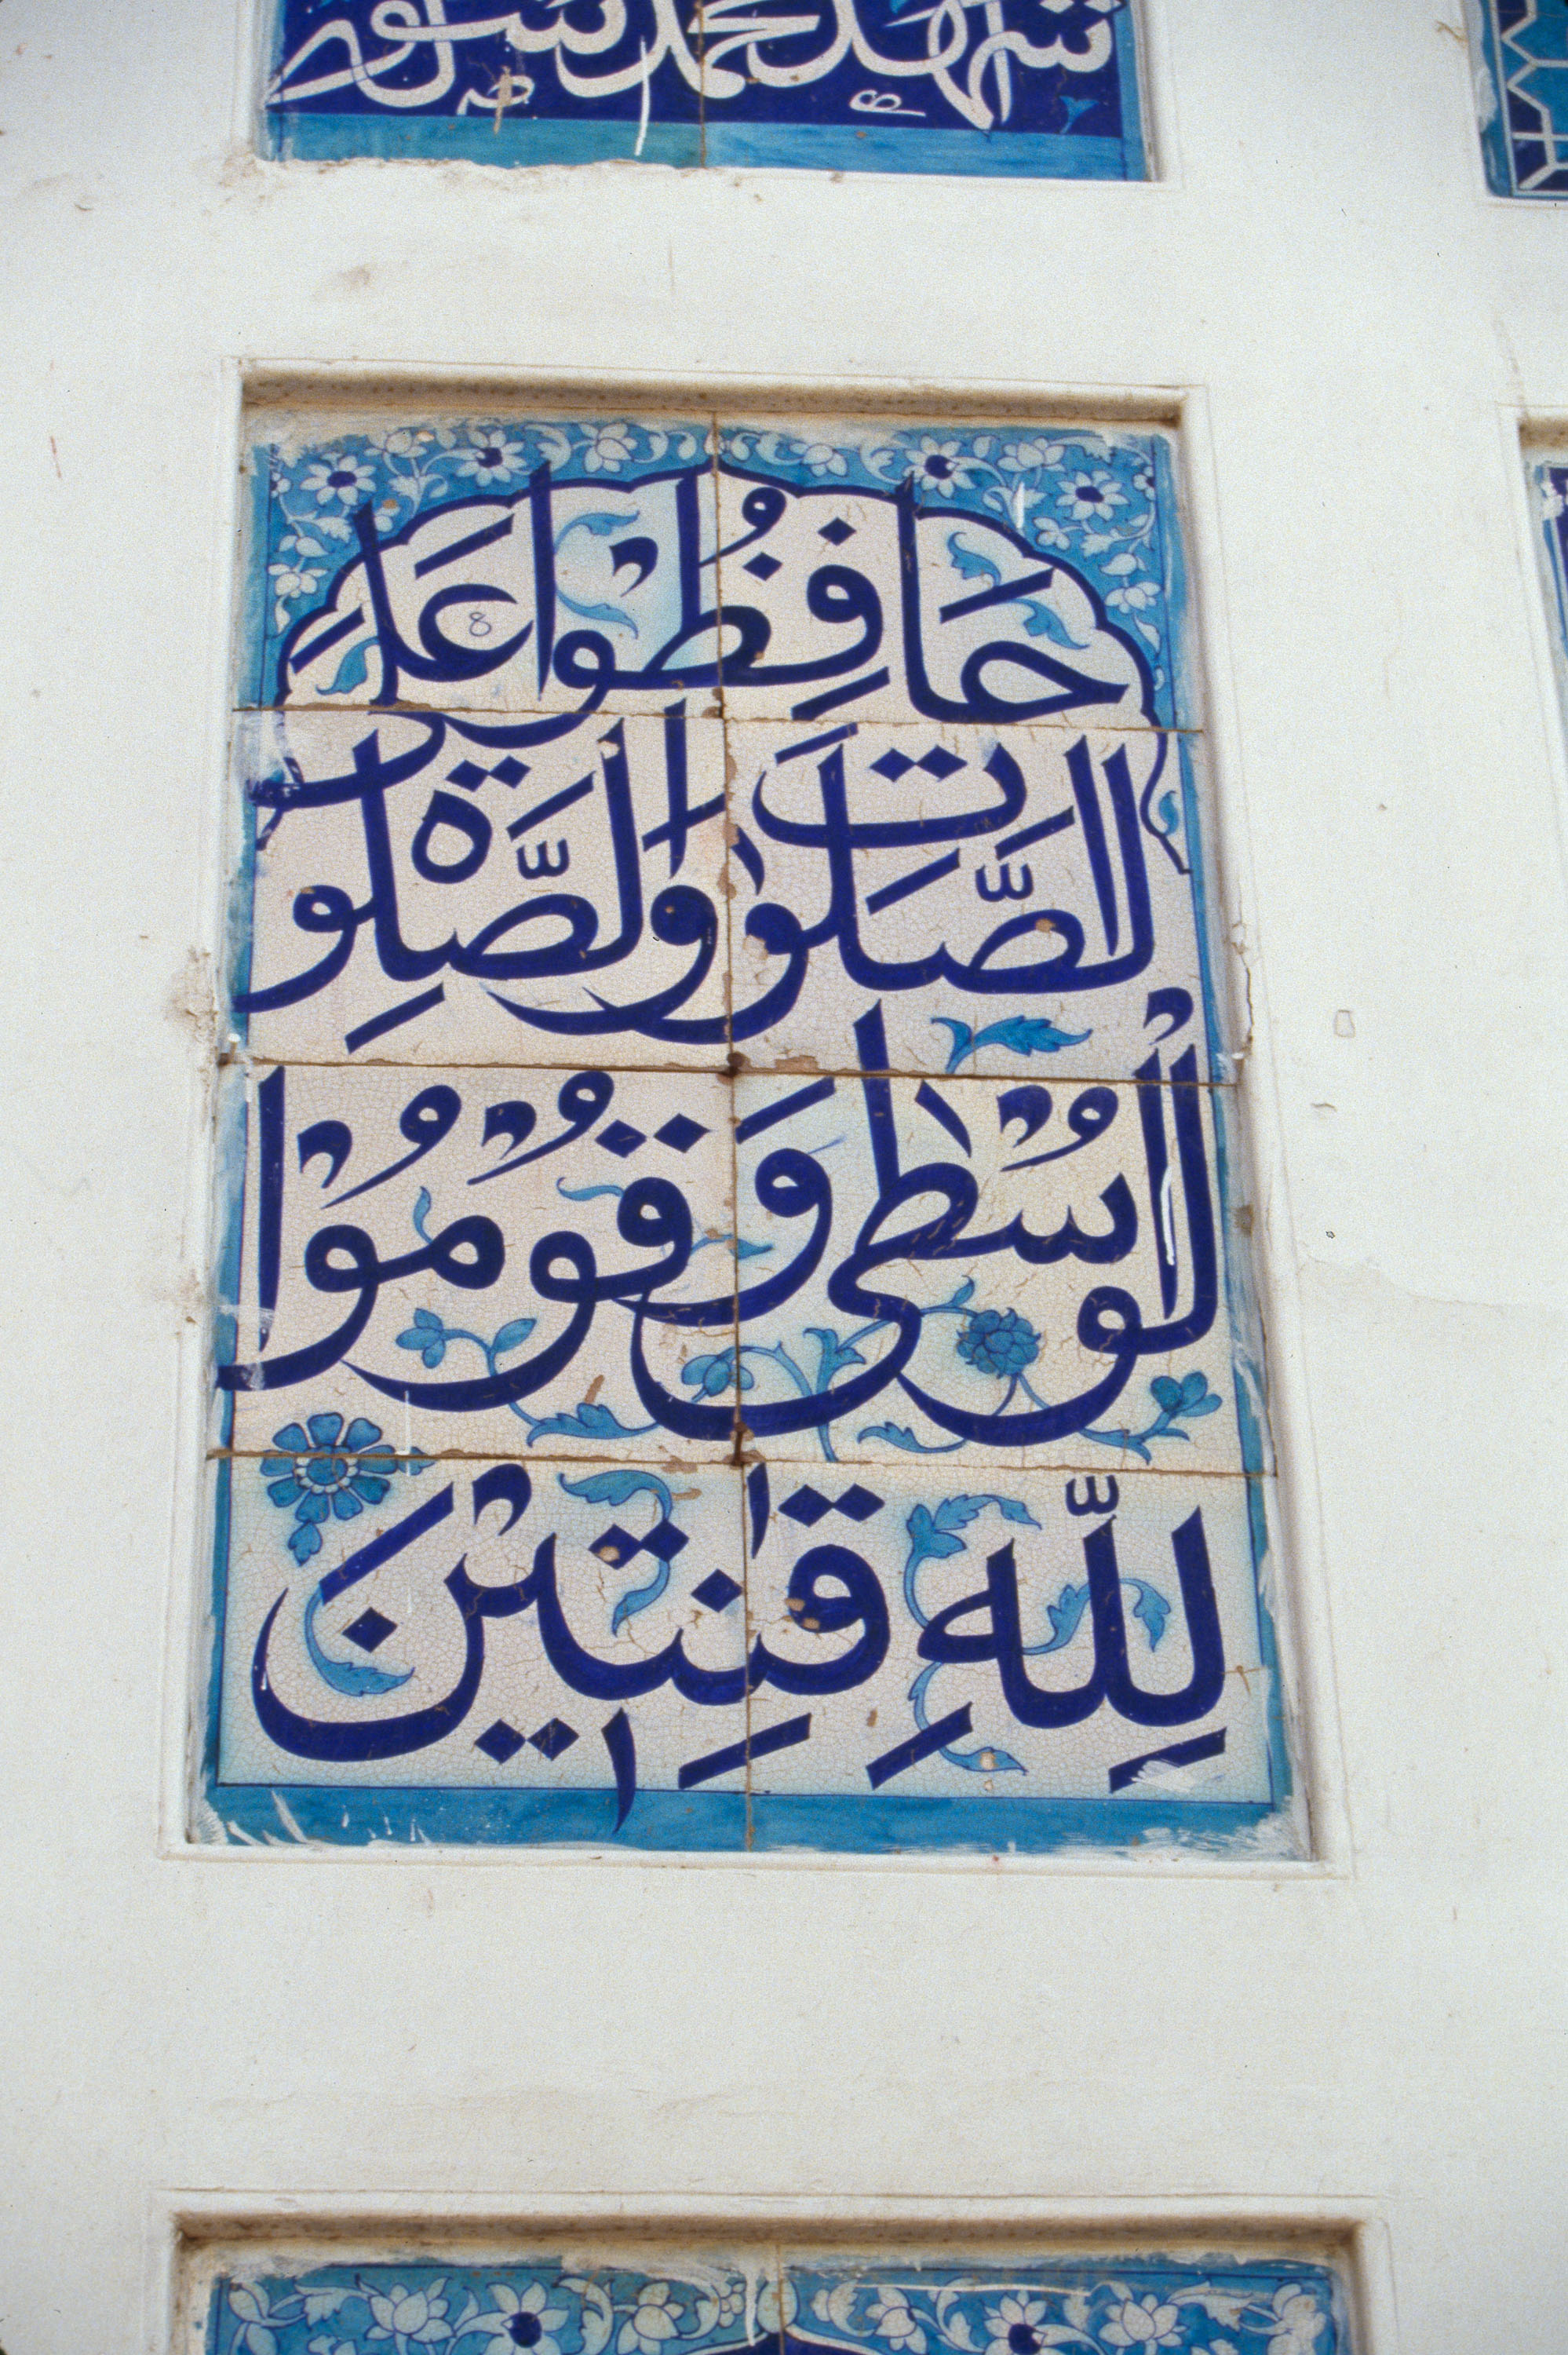 شهد محمد رسول
حَافِظُوْا عَلَى
الصَّلَوٰتِ وَالصَّلٰوةِ
الْوُسْطٰى وَقُوْمُوْا
لِلّٰهِ قٰنِتِيْنَ